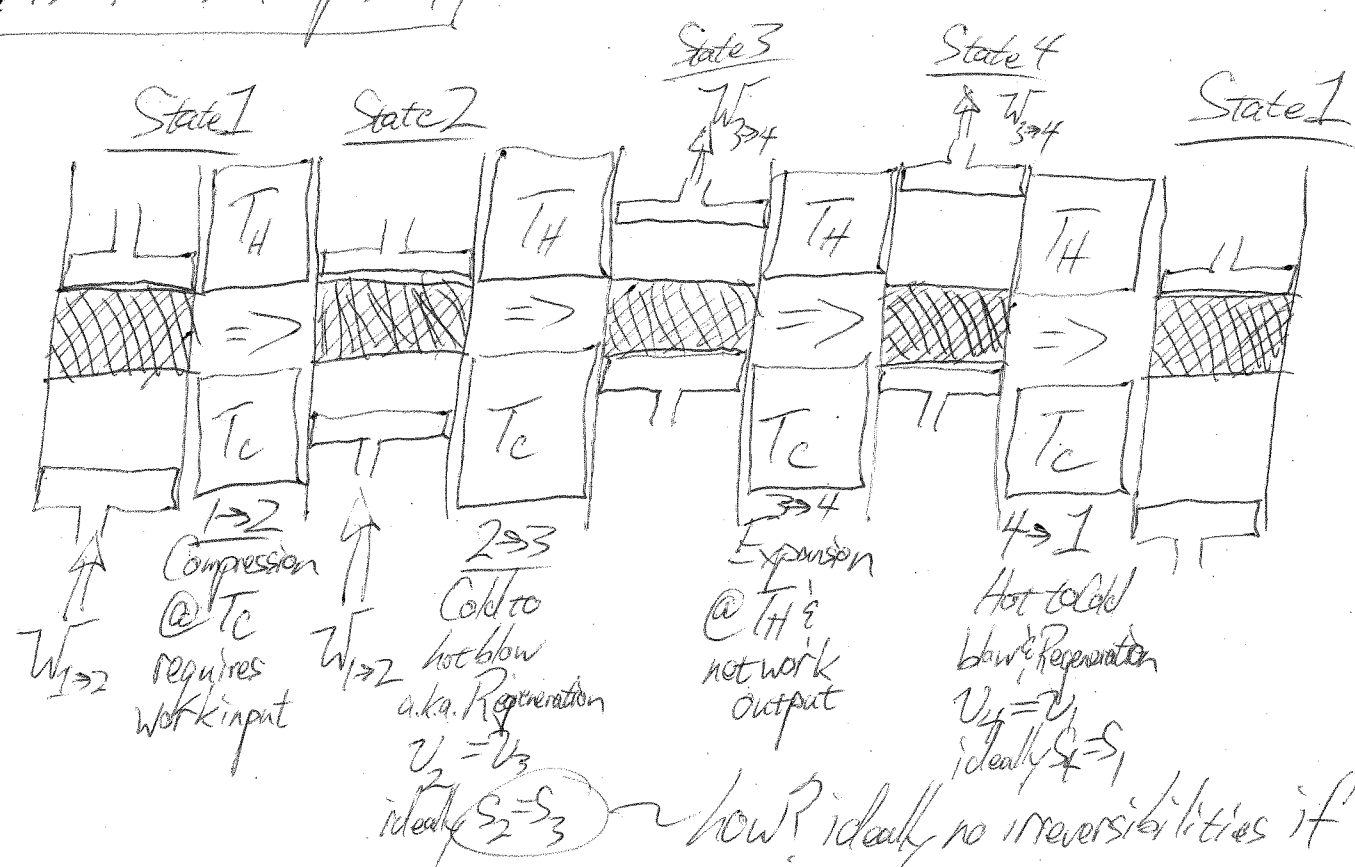 State 3
State 4
W3→4
W3→4
State 1
State 2
State 1
TH
TH
TH
TH
=>
=>
=>
=>
TC
TC
TC
TC
W1→2
1→2
Compression
@ TC
requires
work input
W1→2
2→3
Cold to
hot blow
a.k.a. Regeneration
v2 = v3
ideally s2 = s3
3→4
Expansion
@ TH &
net work
output
4→1
Hot to Cold
blow & Regeneration
v4 = v1
ideally s4 = s1
how? ideally no irreversibilities if